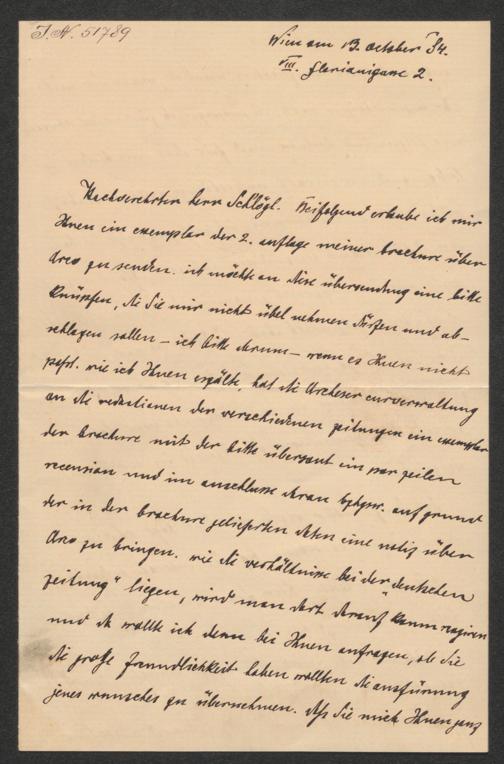 J. N. 51789
Wien am 13. october 84.
VIII. florianigasse 2.
Hochverehrter herr Schlögl. Beifolgend erlaube ich mir
Ihnen ein exemplar der 2. auflage meiner brochure über
Arco zu senden. ich möchte an dise übersendung eine bitte
knüpfen, die Sie mir nicht übel nehmen dürfen und ab-
schlagen sollen – ich bitte darum – wenn es Ihnen nicht
passt. wie ich Ihnen erzälte, hat die Archeser curverwaltung
an die redactionen der verschiedenen zeitungen ein exemplar
der brochure mit der bitte übersant ein par zeilen
recension und im anschlusse daran bzhgsw. auf grund
der in der brochure gelieferten daten eine notiz über
Arco zu bringen. wie die verhältnisse bei der „deutschen
zeitung" liegen, wird man dort darauf kaum reagiren
und da wollte ich denn bei Ihnen anfragen, ob Sie
die große freundlichkeit haben wollten die ausfürung
jenes wunsches zu übernemen. daß Sie mich Ihnen ganz